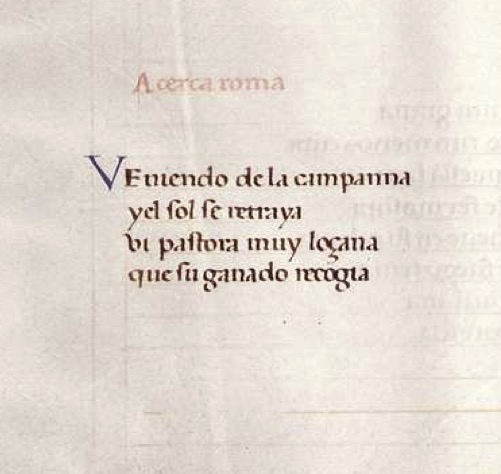 Acerca roma
VEniendo de la campanna
yel sol se retraya
vi pastora muy loçana
que su ganado recogia